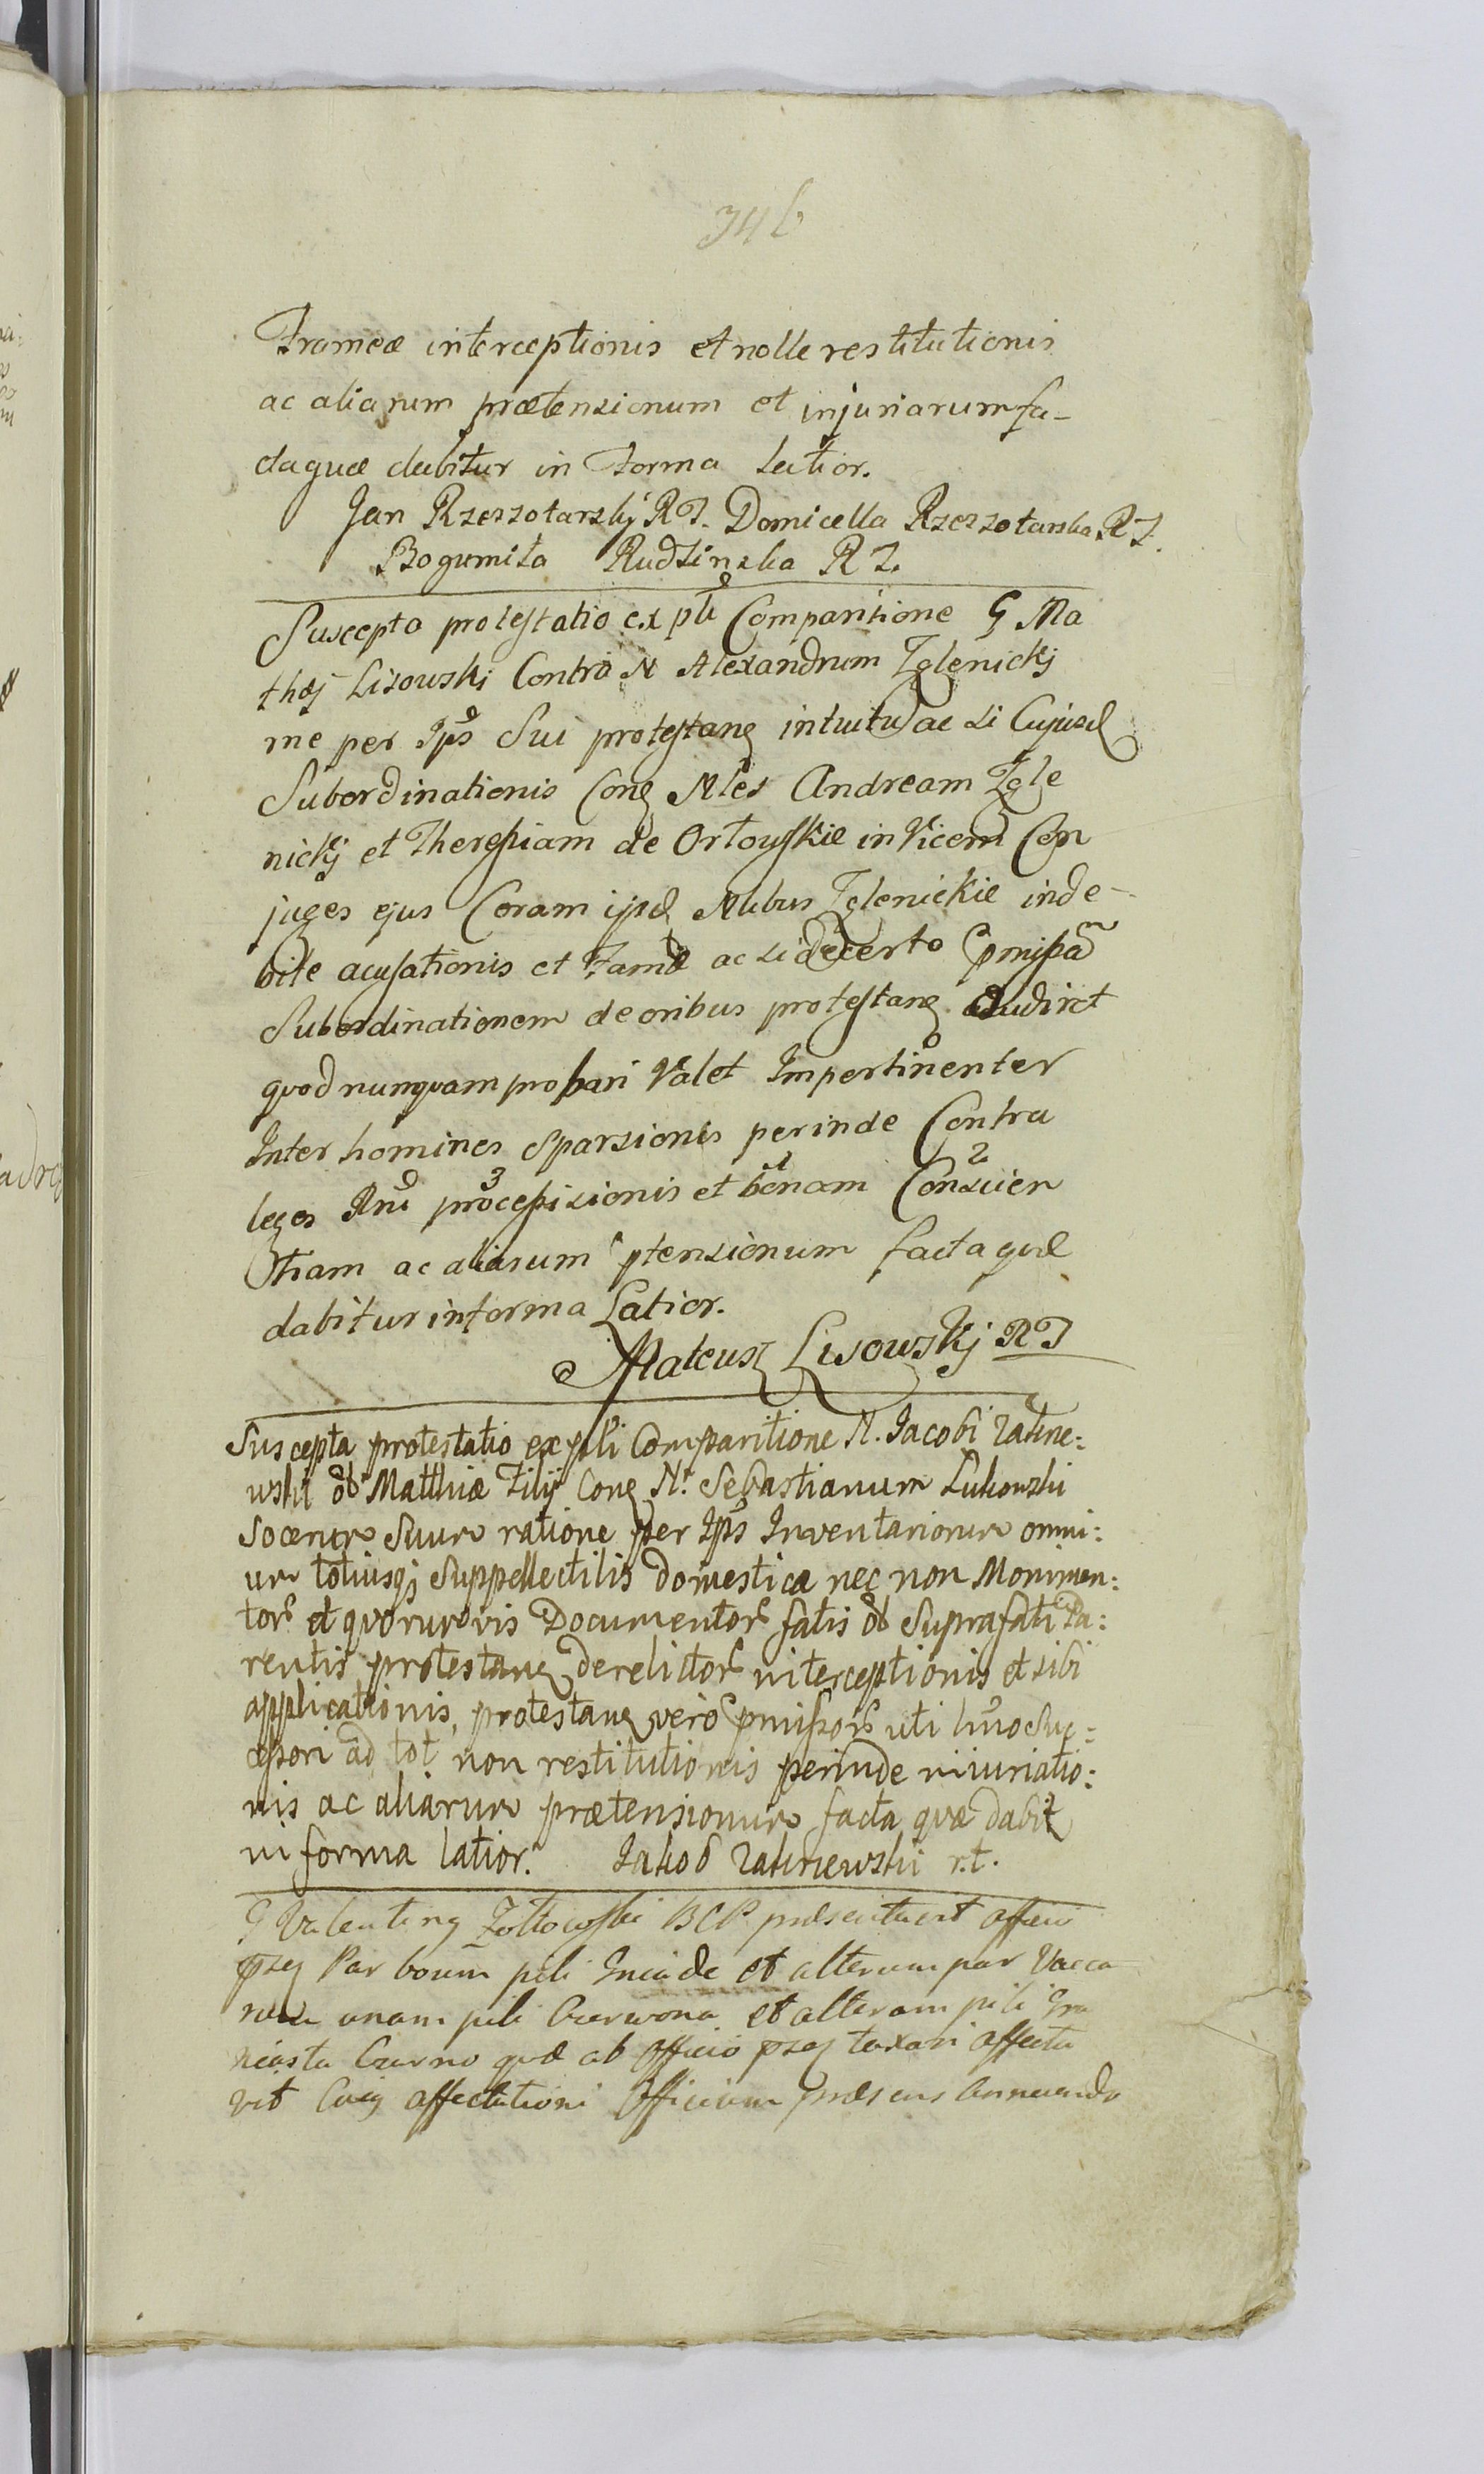 346
Frameæ interceptionis et nolle restitutionis
ac aliarum prætensionum et injuriarum fa-
cta quæ dabitur in Forma Latior.
Jan Rzeszotarskj RT. Domicella Rzeszotarska R T.
Bogumiła Rudzinska R T.
Suscepta protestatio ex pli Comparitione G Ma
thæj Lisowski Contra N Alexandrum Zglenickj
me per Ips Sui protestang intuitu ac si Cujusd
Subordinationis Cong Nles Andream Zgle
nickj et Theresiam de Ortowskie in Vicem Con
juges ejus Coram ipsd Nlibus Zglenickie inde-
bite acusationis et Famæ ac si de certo pmissa
Subordinationem de oribus protestang Audiret
quod nunquam probari Valet Impertinenter
Inter homines Sparsionis perinde Contra
leges Rni processionis et bonam Conscien
3 1 2
tiam ac aliarum ptensionum facta quæ
dabitur in forma Latior.
Mateusz Lisowskj RT
Suscepta protestatio ex pli Comparitione N. Jacobi Zakrze:
wski ol Matthiæ Filij Cong N. Sebastianum Lukowski
Socerum Suum ratione per Ips Inventariorum omni:
um totiusqj Suppellectilis domestica nec non Monimen:
tor et quorumvis Documentor fatis ol Suprafati Pa:
rentis protestang derelictor interceptionis et sibi
applicationis, protestang vero pmissor uti lmo Suc:
cessori ad tot non restitutionis perinde iniuriatio:
nis ac aliarum prætensionum facta quæ dabit
in forma latior. Jakob Zakrzewski r.t.
G Valenting Żołtowski BCP præsentavit officio
psg Par boum pili Gniade et alterum par Vacca
rum unam pili Czerwona et alteram pili Gra
niasta Czarno quæ ab Officio psg taxari affecta
vit Cuig affectationi Officium præsens Annuendo